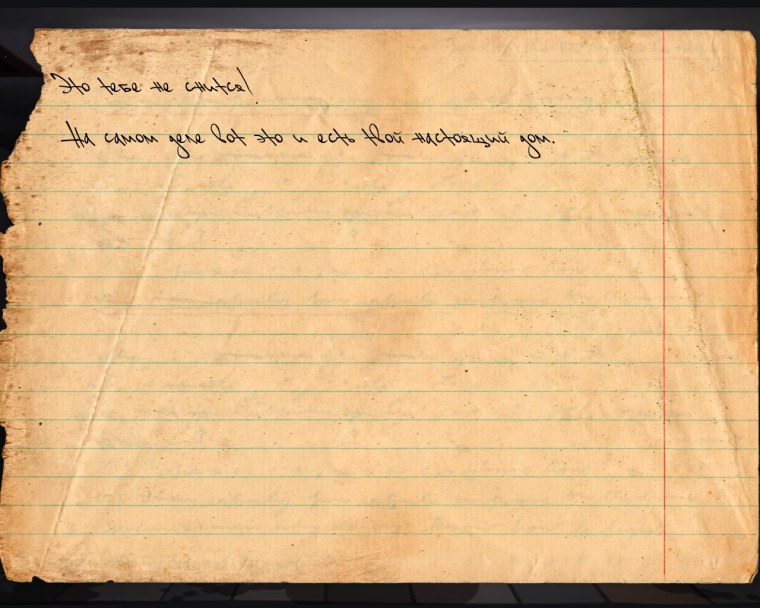 Это тебе не снится!
На самом деле вот это и есть твой настоящий дом.